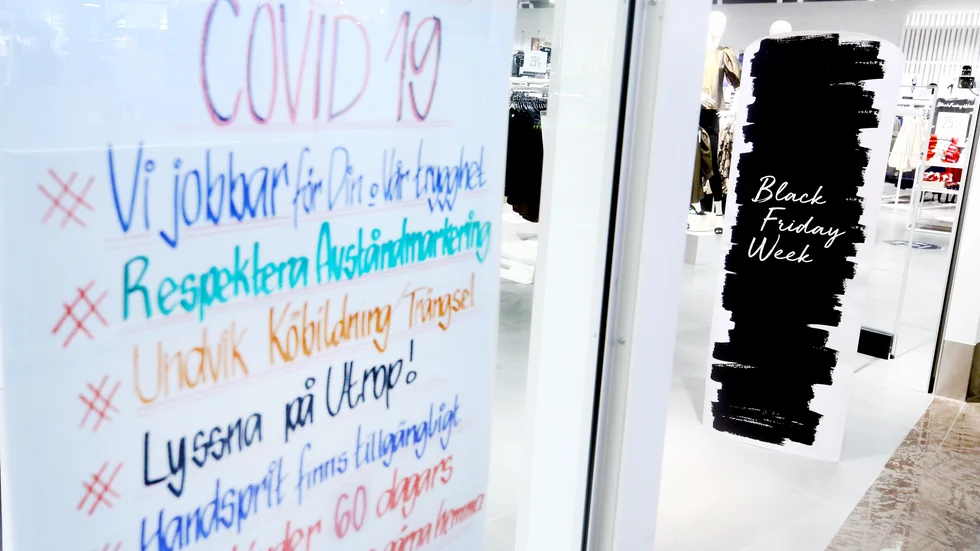 COVID 19
# Vi jobbar för Din o Vår trygghet
# Respektera Avståndmarkering
# Undvik Köbildning/Trängsel
# Lyssna på Utrop!
Handsprit finns tillgängligt
60 dagars
gärna hemma
Black
Friday
Week